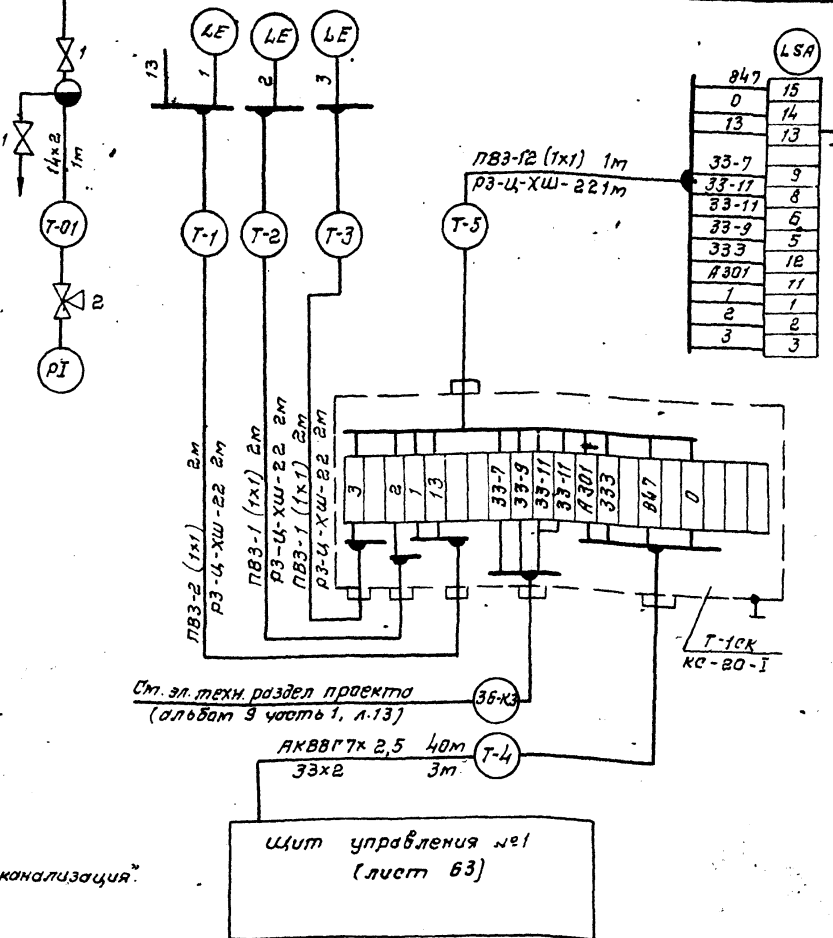 LE
LE
LE
LSA
1
13
1
2
3
847 15
0 14
13 13
33-7 9
33-11 8
33-11 6
33-9 5
333 12
А301 11
1 1
2 2
3 3
1
14×2
1м
ПВЗ-12 (1×1) 1м
РЗ-Ц-ХШ-22 1м
Т-01
Т-1
Т-2
Т-3
Т-5
2
PI
ПВЗ-2 (1×1) 2м
РЗ-Ц-ХШ-22 2м
ПВЗ-1 (1×1) 2м
РЗ-Ц-ХШ-22 2м
ПВЗ-1 (1×1) 2м
РЗ-Ц-ХШ-22 2м
3 2 1 13 33-7 33-9 33-11 33-11 А301 333 847 0
Т-1СК
КС-20-I
См. эл. техн. раздел проекта
(альбом 9 часть 1, л.13)
36-К3
АКВВГ 7×2,5 40м
33×2 3м
Т-4
Щит управления №1
(лист 63)
канализация".